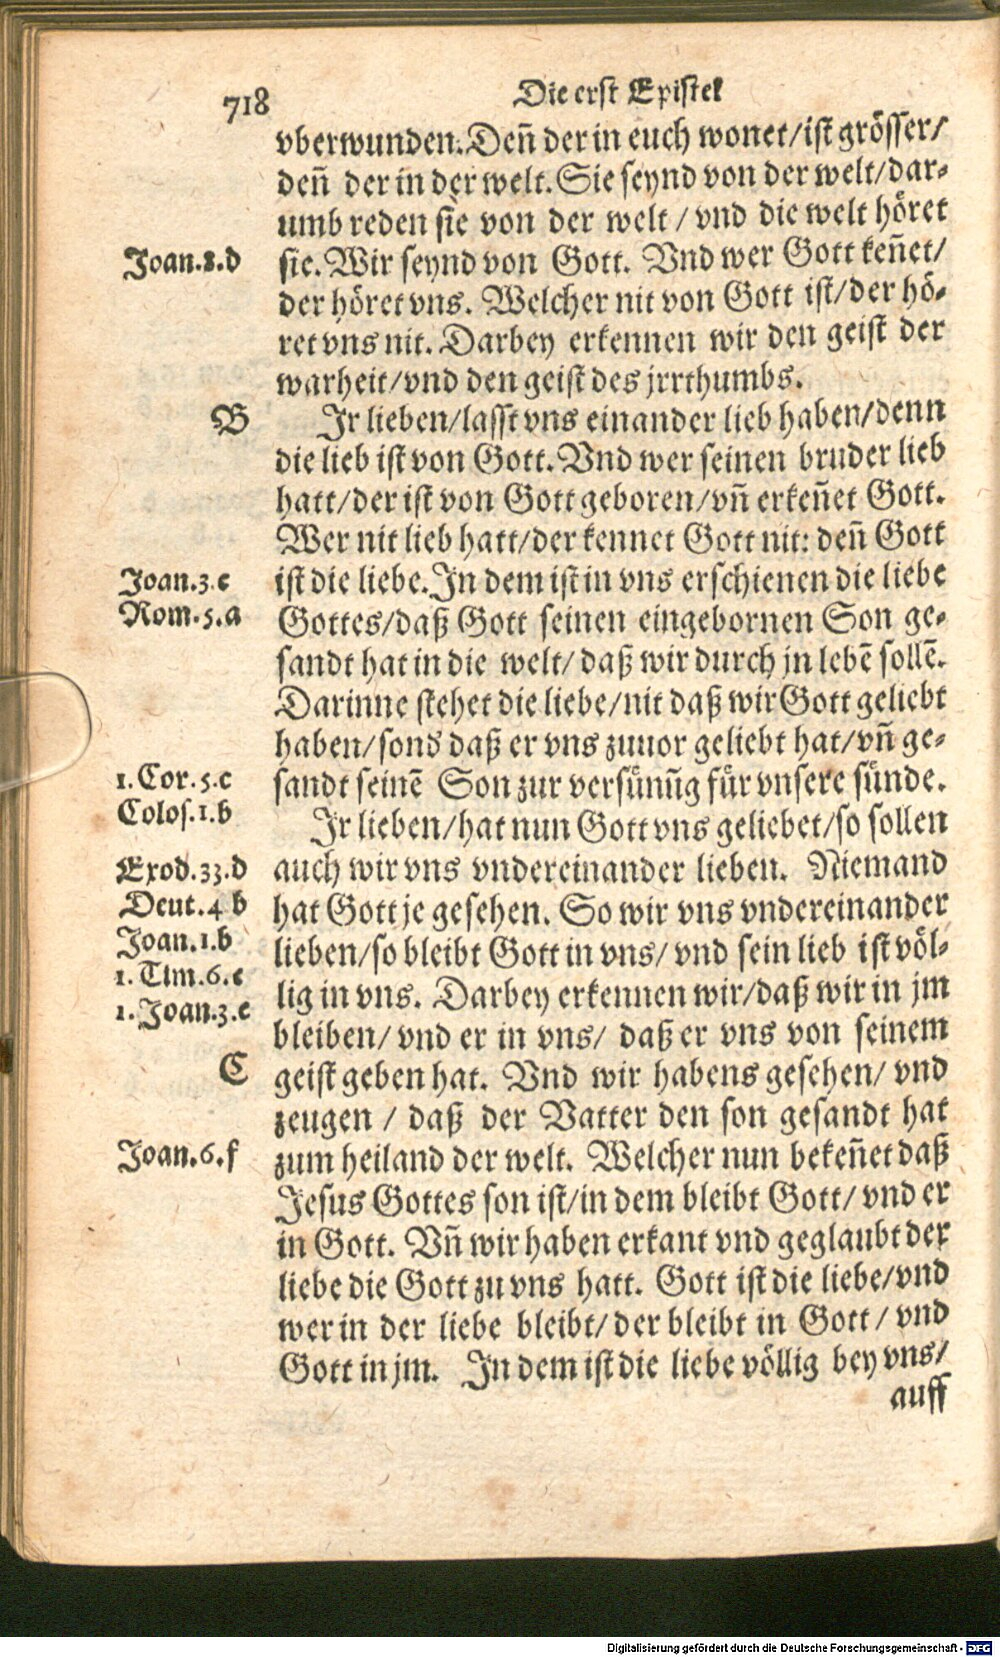 718
Die erst Epistel
vberwunden. Deñ der in euch wonet/ist grösser/
deñ der in der welt. Sie seynd von der welt/dar-
umb reden sie von der welt / vnd die welt höret
Joan.8.d
sie. Wir seynd von Gott. Vnd wer Gott keñet/
der höret vns. Welcher nit von Gott ist/der hö-
ret vns nit. Darbey erkennen wir den geist der
warheit/vnd den geist des jrrthumbs.
B
Ir lieben/lasst vns einander lieb haben/denn
die lieb ist von Gott. Vnd wer seinen bruder lieb
hatt/der ist von Gott geboren/vñ erkeñet Gott.
Wer nit lieb hatt/der kennet Gott nit: deñ Gott
Joan.3.c
ist die liebe. In dem ist in vns erschienen die liebe
Rom.5.a
Gottes/daß Gott seinen eingebornen Son ge-
sandt hat in die welt/ daß wir durch jn lebē sollē.
Darinne stehet die liebe/nit daß wir Gott geliebt
haben/sond daß er vns zuuor geliebt hat/vñ ge-
1. Cor.5.c
sandt seinē Son zur versünũg für vnsere sünde.
Colos.1.b
Ir lieben/hat nun Gott vns geliebet/so sollen
Exod.33.d
auch wir vns vndereinander lieben. Niemand
Deut.4 b
hat Gott je gesehen. So wir vns vndereinander
Joan.1.b
lieben/so bleibt Gott in vns/ vnd sein lieb ist völ-
1. Tim.6.c
lig in vns. Darbey erkennen wir/daß wir in jm
1. Joan.3.c
bleiben/ vnd er in vns/ daß er vns von seinem
C
geist geben hat. Vnd wir habens gesehen/ vnd
zeugen / daß der Vatter den son gesandt hat
Joan.6.f
zum heiland der welt. Welcher nun bekeñet daß
Jesus Gottes son ist/in dem bleibt Gott/ vnd er
in Gott. Vñ wir haben erkant vnd geglaubt der
liebe die Gott zu vns hatt. Gott ist die liebe/vnd
wer in der liebe bleibt/der bleibt in Gott/ vnd
Gott in jm. In dem ist die liebe völlig bey vns/
auff
Digitalisierung gefördert durch die Deutsche Forschungsgemeinschaft - DFG